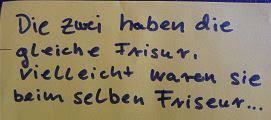 Die zwei haben die
gleiche Frisur.
vielleicht waren sie
beim selben Friseur...